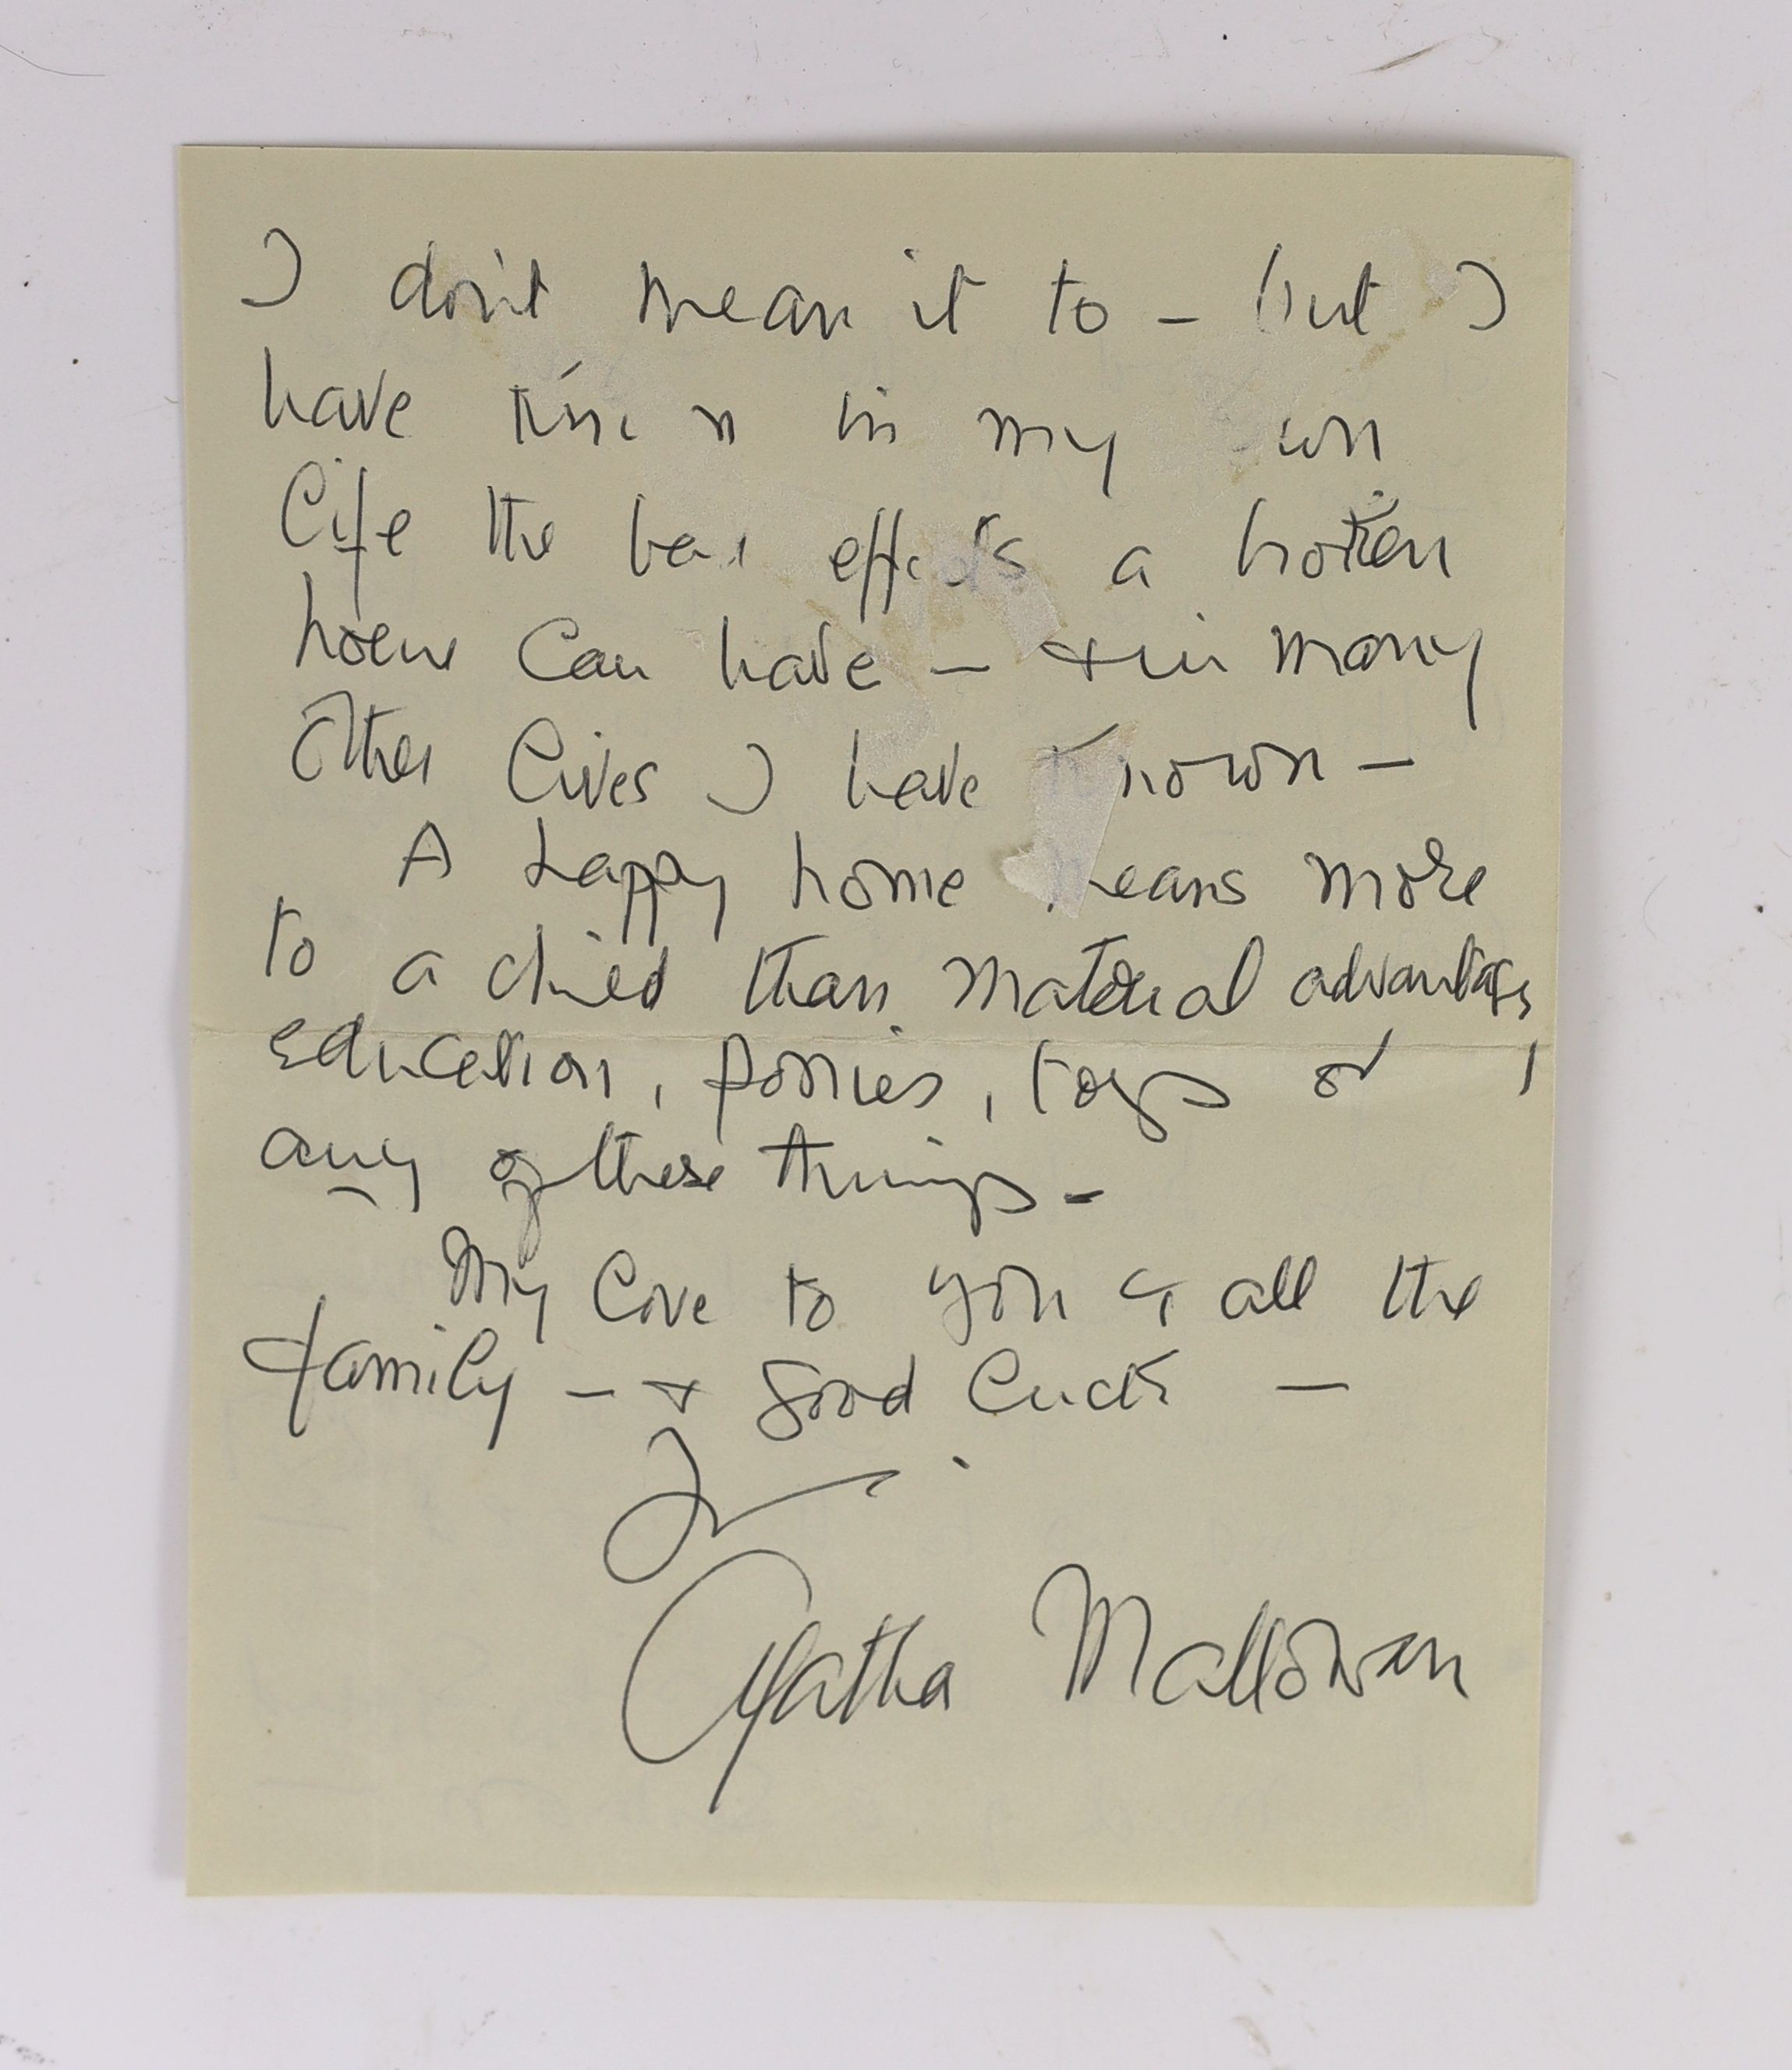 I don't mean it to – but I
have known in my own
life the bad effects a broken
home can have – & in many
other lives I have known –
A happy home means more
to a child than material advantages
education, ponies, toys or
any of these things –
My love to you & all the
family – & good luck –
Agatha Mallowan